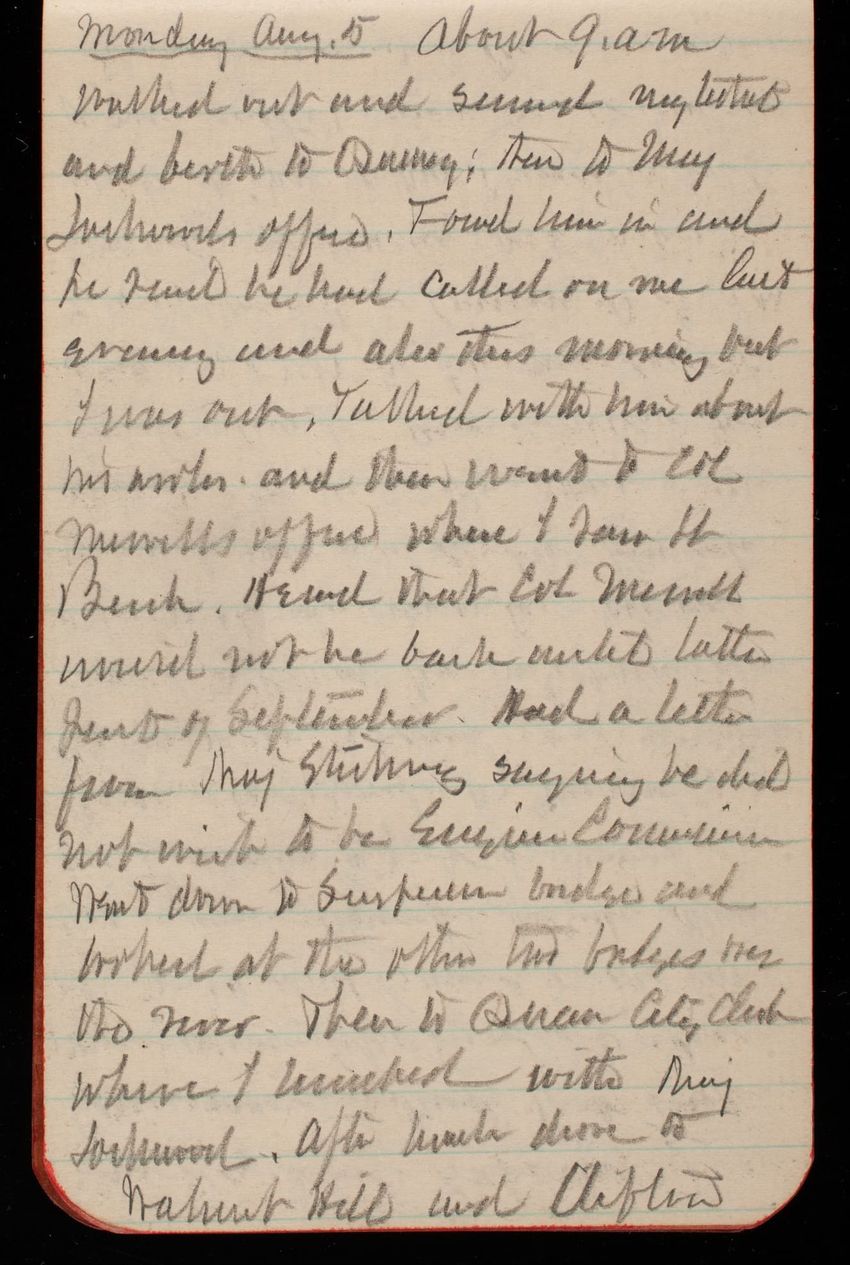 Monday Aug. 5 About 9. a m
Walked out and secured
and berth to then to Maj
Lockwoods office. Found him in and
he said he had called on me last
evening and also this morning but
I was out, Talked with him about
his and then went to Col
Merrills office where I saw Lt
Beach. Heard that Col Merrill
would not be back until latter
part of September. Had a letter
from Maj saying he did
not wish to be Engineer Commissioner
Went down to Suspension bridge and
looked at the other two bridges over
the river. Then to Queen City Club
where I lunched with Maj
Lockwood. After lunch drove to
Walnut Hill and Clifton